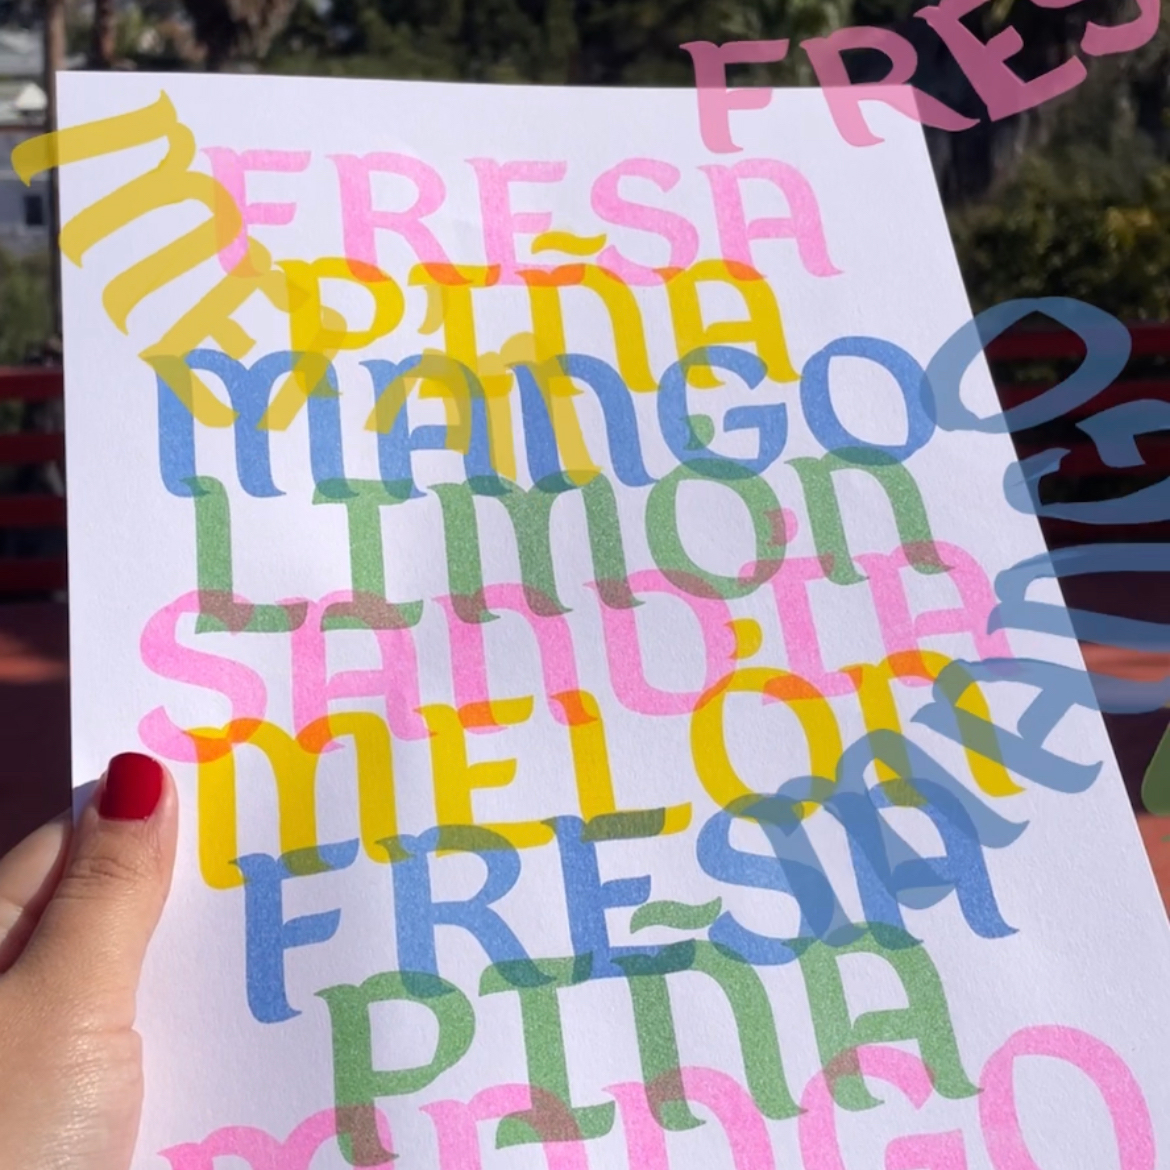 FRES
FRESA
PIÑA
MANGO
LIMÓN
SANDÍA
MELÓN
FRESA
PIÑA
MANGO
MELÓN
MANGO